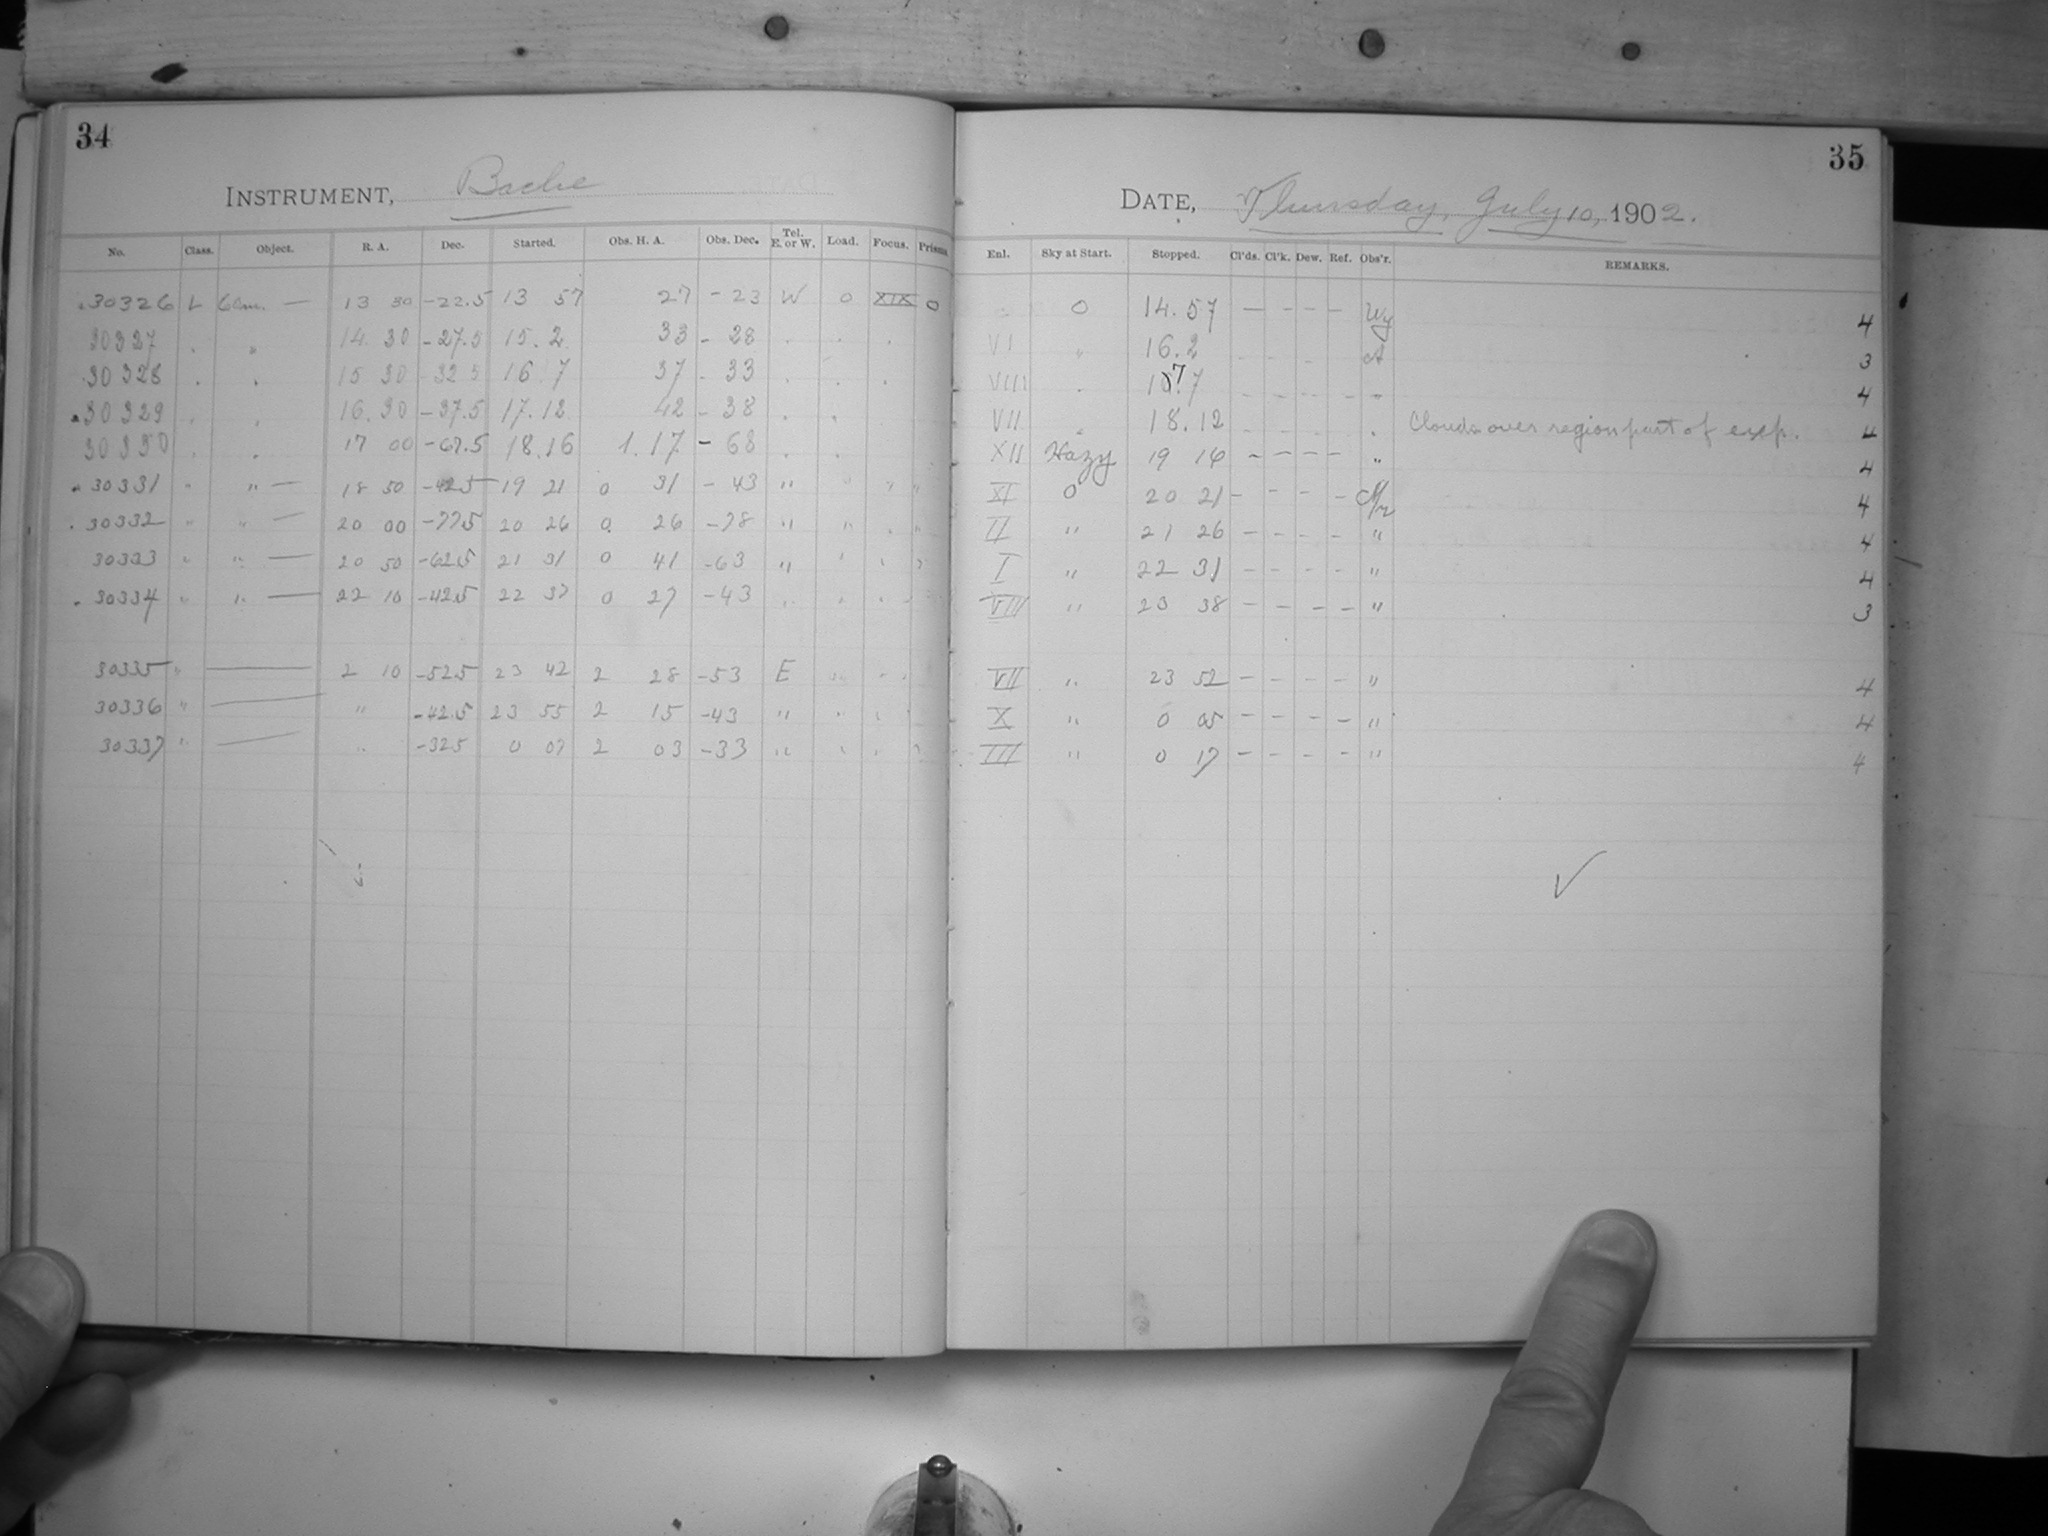 34
INSTRUMENT, Bache
No. Class. Object. R. A. Dec. Started. Obs. H. A. Obs. Dec. Tel. E. or W. Load. Focus. Prisms
30326 L Cam. — 13 30 -22.5 13 57 27 - 23 W 0 XIX 0
30327 . " 14 30 -27.5 15.2 33 - 28 . . .
30328 . . 15 30 -32 5 16 7 37 - 33 . . .
30329 . . 16.30 -37.5 17.12 42 - 38 . .
30330 . . 17 00 -67.5 18.16 1.17 - 68 . .
30331 " " — 18 50 -42.5 19 21 0 31 - 43 " " "
30332 " " — 20 00 -77.5 20 26 0 26 -78 " " . "
30333 " " — 20 50 -62.5 21 31 0 41 -63 " ' " "
30334 " " — 22 10 -42.5 22 37 0 27 -43 " " " "
30335 " — 2 10 -52.5 23 42 2 28 -53 E " " "
30336 " — " -42.5 23 55 2 15 -43 " " " "
30337 " — " -32.5 0 07 2 03 -33 " " " "
35
DATE, Thursday, July 10, 1902.
Enl. Sky at Start. Stopped. Cl'ds. Cl'k. Dew. Ref. Obs'r. REMARKS.
0 14.57 — — — — Wy 4
VI " 16.2 — — — — A 3
VIII . 7.7 — — — — " 4
VII " 18.12 — — — — . Clouds over region part of exp. 4
XII Hazy 19 16 — — — — " 4
XI 0 20 21 — — — — 4
II " 21 26 — — — — " 4
I " 22 31 — — — — " 4
VIII " 23 38 — — — — " 3
VII " 23 52 — — — — " 4
X " 0 05 — — — — " 4
III " 0 17 — — — — " 4
✓